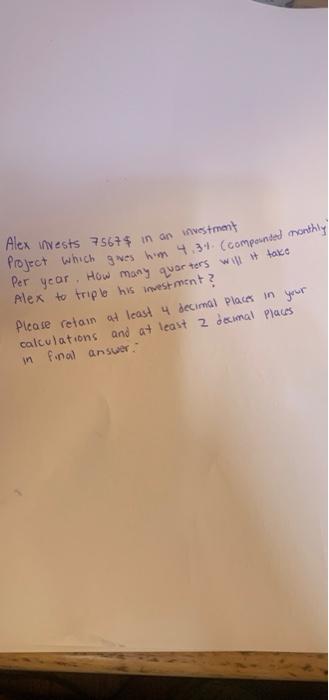 Alex invests 7567$ in an investment
Project which gives him 4.3%. (compounded monthly)
Per year. How many quarters will it take
Alex to triple his investment?
Please retain at least 4 decimal places in your
calculations and at least 2 decimal places
in final answer.